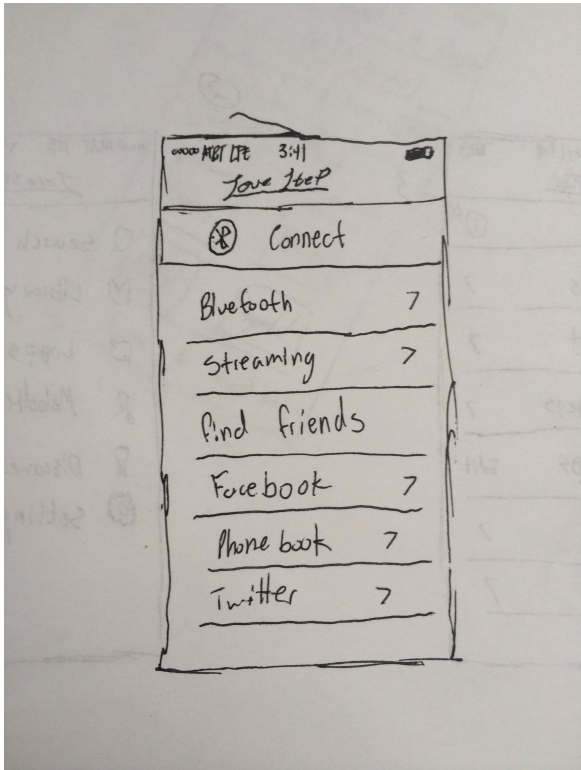 AT&T LTE 3:41
Connect
Bluetooth >
Streaming >
find friends
Facebook >
Phone book >
Twitter >